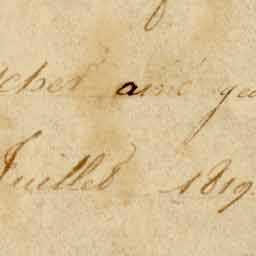 cher ami
Juillet 1819.